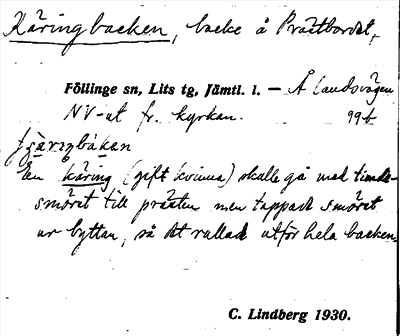 Käringbacken, backe å Prästbordet,
Föllinge sn, Lits tg, Jämtl. l. — Å landsvägen
NV-ut fr. kyrkan. 99b
En käring (gift kvinna) skulle gå med tionde-
smöret till prästen men tappade smöret
ur byttan, så det rullade utför hela backen.
C. Lindberg 1930.